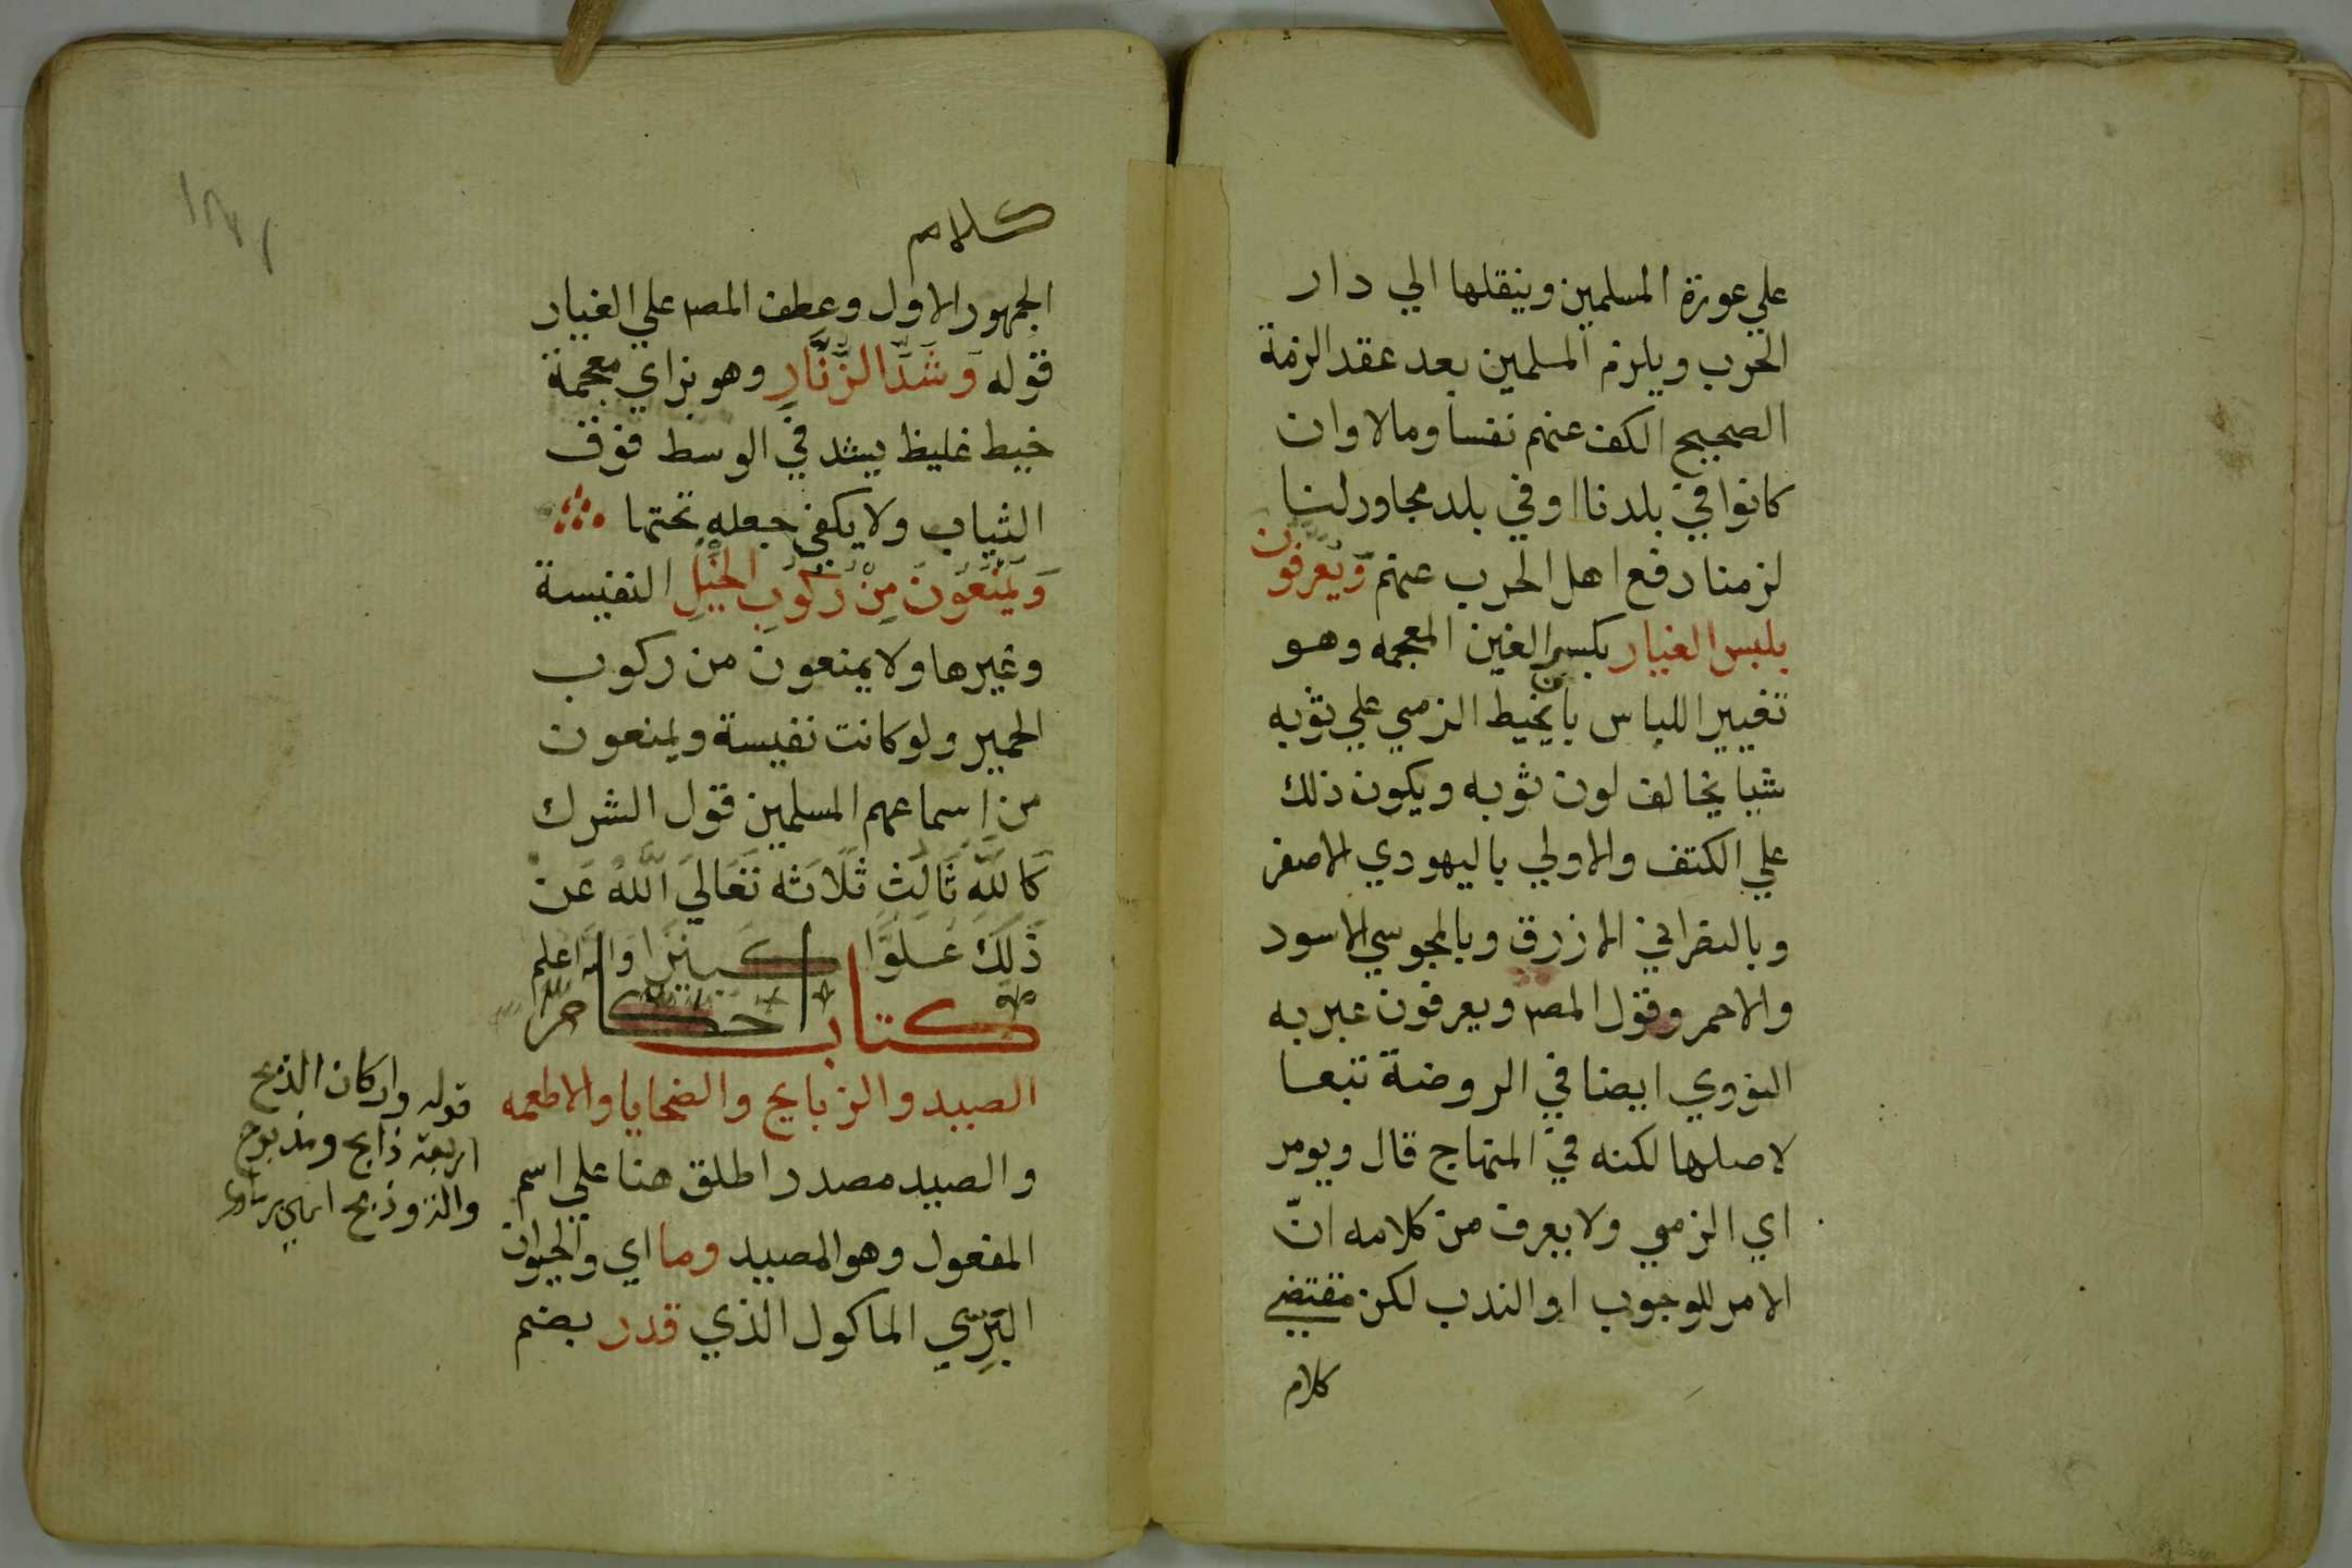 علي عورة المسلمين وينقلها الي دار
الحرب ويلزم المسلمين بعد عقد الزمة
الصحيح الكف عنهم نفسا ومالا وان
كانوا في بلدنا او في بلد مجاور لنا
لزمنا دفع اهل الحرب عنهم وَيُعَرَّفُون
بلبس الغيار بكسر الغين المعجمه وهو
تغيير اللباس بان يخيط الزمي علي ثوبه
شيا يخالف لون ثوبه ويكون ذلك
علي الكتف والاولي باليهودي الاصفر
وبالنصراني الازرق وبالمجوسي الاسود
والاحمر وقول المصر ويعرفون عبر به
النووي ايضا في الروضة تبعا
لاصلها لكنه في المنهاج قال ويومر
اي الزمي ولا يعرف من كلامه انّ
الامر للوجوب او الندب لكن مقتضي
كلام
كلام
الجمهور الاول وعطف المصر علي الغيار
قوله وَشَدِّ الزُّنَّارِ وهو بزاي معجمة
خيط غليظ يشد في الوسط فوق
الثياب ولا يكفي جعله تحتها
وَيُمْنَعُونَ مِنْ رُكُوبِ الخَيْلِ النفيسة
وغيرها ولا يمنعون من ركوب
الحمير ولو كانت نفيسة ويمنعون
من اسماعهم المسلمين قول الشرك
كَاللَّهِ ثَالِثِ ثَلَاثَه تَعَالَي اللَّهُ عَنْ
ذَلِكَ عُلُوًّا كَبِيرًا وَاللّه اعلم
كتاب احكام
الصيد والزبايح والضحايا والاطعمه
والصيد مصدر اطلق هنا علي اسم
المفعول وهو المصيد وما اي والحيوان
البَرِّي الماكول الذي قدر بضم
قوله واركان الذبح
اربعة ذابح ومذبوح
وذبح